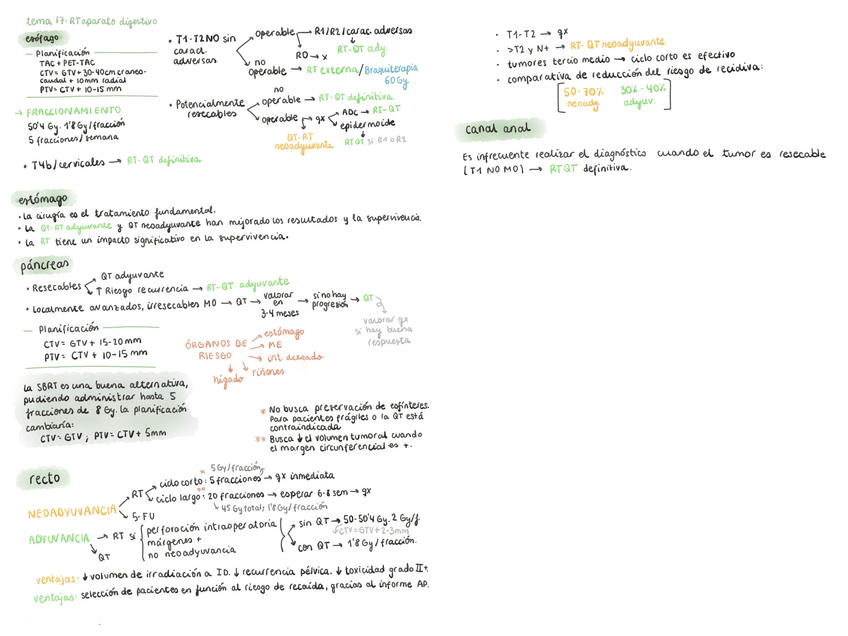 tema 17: RT aparato digestivo
esófago
— Planificación
TAC + PET-TAC
CTV = GTV + 30-40cm craneo-
caudal + 10mm radial
PTV = CTV + 10-15 mm
→ FRACCIONAMIENTO
50'4 Gy. 1'8 Gy/fracción
5 fracciones/semana
• T4b/cervicales → RT-QT definitiva
• T1-T2N0 sin
caract.
adversas
operable → R1/R2/carac. adversas
R0 → x
RT-QT ady.
no
operable → RT externa/Braquiterapia
60Gy
• Potencialmente
resecables
no
operable → RT-QT definitiva
operable → qx
ADC → RT-QT
epidermoide
QT-RT
neoadyuvante
RTQT si R1 o R2
estómago
• la cirugía es el tratamiento fundamental.
• la QT-RT adyuvante y QT neoadyuvante han mejorado los resultados y la supervivencia.
• la RT tiene un impacto significativo en la supervivencia.
páncreas
• Resecables
QT adyuvante
↑ Riesgo recurrencia → RT-QT adyuvante
• Localmente avanzados, irresecables M0 → QT → valorar
en
3-4 meses
→ si no hay
progresión
→ QT
valorar qx
si hay buena
respuesta
— Planificación
CTV = GTV + 15-20 mm
PTV = CTV + 10-15 mm
ÓRGANOS DE
RIESGO
→ estómago
→ ME
→ int delgado
riñones
hígado
la SBRT es una buena alternativa,
pudiendo administrar hasta 5
fracciones de 8 Gy. la planificación
cambiaría:
CTV = GTV ; PTV = CTV + 5mm
* No busca preservación de esfínteres.
Para pacientes frágiles o la QT está
contraindicada
** Busca ↓ el volumen tumoral cuando
el margen circunferencial es +.
recto
NEOADYUVANCIA
RT
* 5 Gy/fracción
ciclo corto: 5 fracciones → qx inmediata
**
ciclo largo: 20 fracciones → esperar 6-8 sem → qx
45 Gy total; 1'8 Gy/fracción
5-FU
ADYUVANCIA → RT si
perforación intraoperatoria
márgenes +
no neoadyuvancia
QT
sin QT → 50-50'4 Gy. 2 Gy/f.
CTV = GTV + 2-3mm
con QT → 1'8 Gy/fracción.
ventajas: ↓ volumen de irradiación a ID. ↓ recurrencia pélvica. ↓ toxicidad grado II+.
ventajas: selección de pacientes en función al riesgo de recaída, gracias al informe AP.
• T1-T2 → qx
• >T2 y N+ → RT-QT neoadyuvante
• tumores tercio medio → ciclo corto es efectivo
• comparativa de reducción del riesgo de recidiva:
50-70% 30%-40%
neoady. adyuv.
canal anal
Es infrecuente realizar el diagnóstico cuando el tumor es resecable
(T1 N0 M0) → RTQT definitiva.